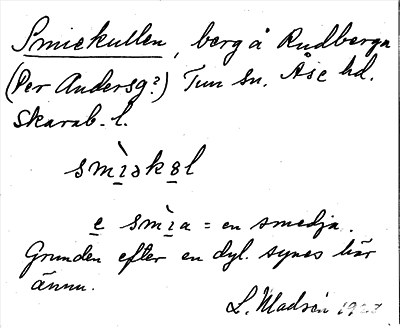 Smiekullen, berg å Rudberga
(Per Andersg?) Tun sn. Åse hd.
Skarab. l.
smìəkȣl
e smìa = en smedja.
Grunden efter en dyl. synes här
ännu.
L. Madsén